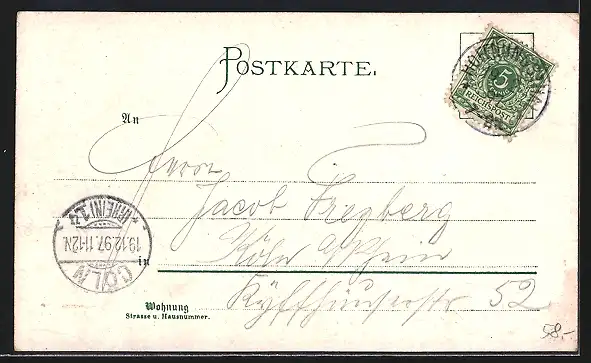 POSTKARTE.
5
REICHSPOST
An
Herrn
Jacob Freyberg
in Köln a/Rhein
Wohnung
Strasse u. Hausnummer.
Kyffhäuserstr 52
CÖLN
19.12.97. 11-12N.
(RHEIN) 1
58.-